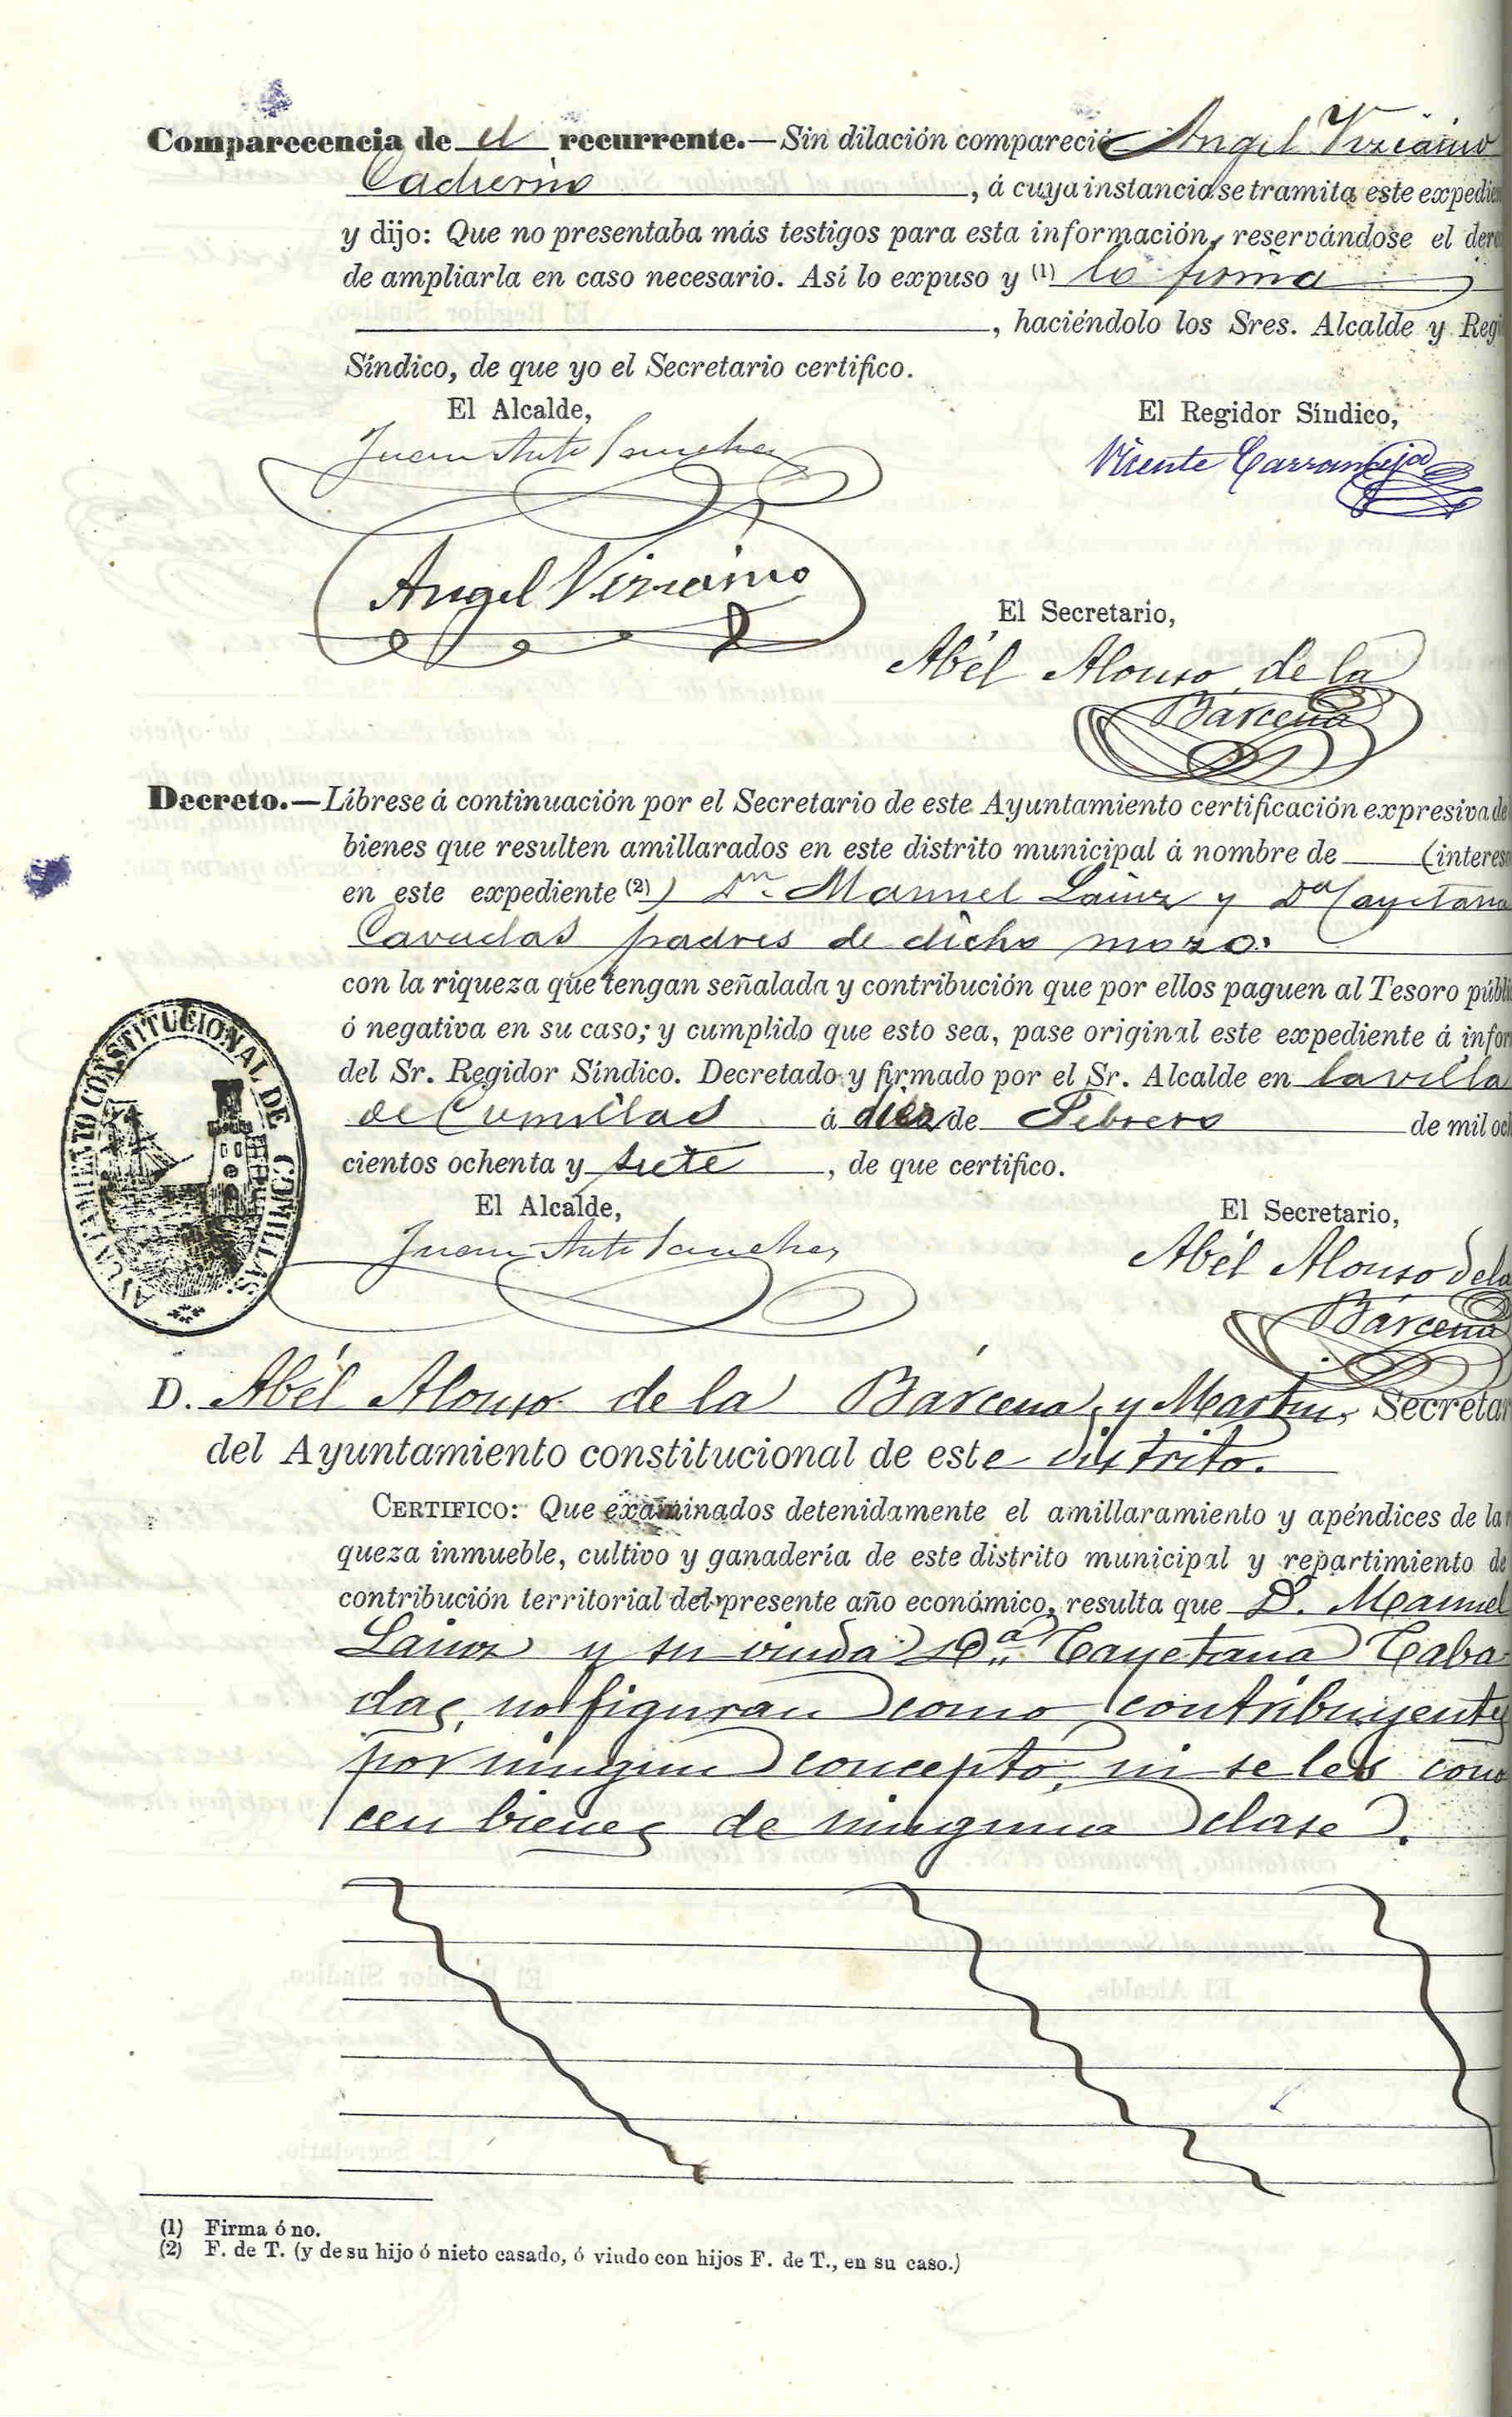 Comparecencia de el recurrente.—Sin dilación compareció Angel Vizcaino
, á cuya instancia se tramita este expedien
y dijo: Que no presentaba más testigos para esta información, reservándose el dere
de ampliarla en caso necesario. Así lo expuso y (1) lo firma
, haciéndolo los Sres. Alcalde y Regi
Síndico, de que yo el Secretario certifico.
El Alcalde,
El Regidor Síndico,
Juan Anto Sanchez
Vicente Carranceja
Angel Vizcaino
El Secretario,
Abél Alonso de la
Bárcena
Decreto.—Líbrese á continuación por el Secretario de este Ayuntamiento certificación expresiva de
bienes que resulten amillarados en este distrito municipal á nombre de (interes
en este expediente (2)) Dn Manuel Lainz y Da Cayetana
Cavadas padres de dicho mozo.
con la riqueza que tengan señalada y contribución que por ellos paguen al Tesoro públi
ó negativa en su caso; y cumplido que esto sea, pase original este expediente á infor
del Sr. Regidor Síndico. Decretado y firmado por el Sr. Alcalde en la villa
de Comillas á diez de Febrero de mil oc
cientos ochenta y siete, de que certifico.
AYUNTAMIENTO CONSTITUCIONAL DE COMILLAS
El Alcalde,
El Secretario,
Juan Anto Sanchez
Abél Alonso de la
Bárcena
D. Abél Alonso de la Bárcena y Martin, Secretar
del Ayuntamiento constitucional de este distrito.
CERTIFICO: Que examinados detenidamente el amillaramiento y apéndices de la
queza inmueble, cultivo y ganadería de este distrito municipal y repartimiento de
contribución territorial del presente año económico, resulta que D. Manuel
Lainz y su viuda Da Cayetana Caba
das, no figuran como contribuyentes
por ningun concepto, ni se les cono
cen bienes de ninguna clase.
(1) Firma ó no.
(2) F. de T. (y de su hijo ó nieto casado, ó viudo con hijos F. de T., en su caso.)